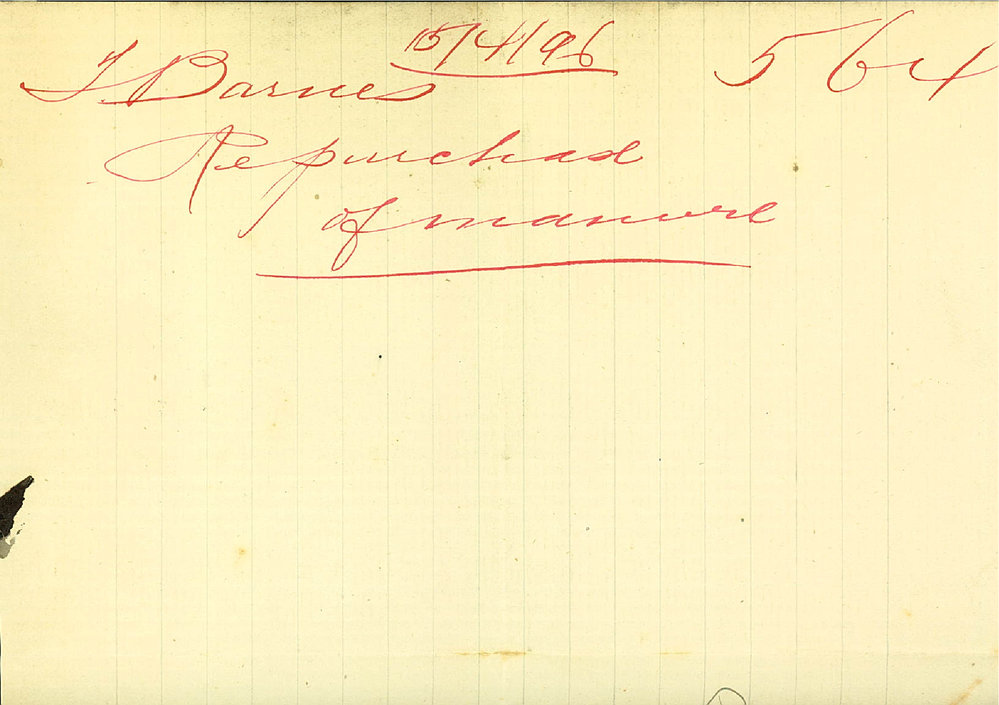 15/4/96
T Barnes 564
Re purchase
of manure